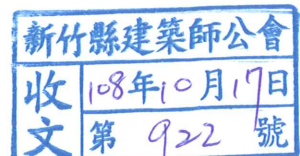 新竹縣建築師公會
收文
108年10月17日
第 922 號